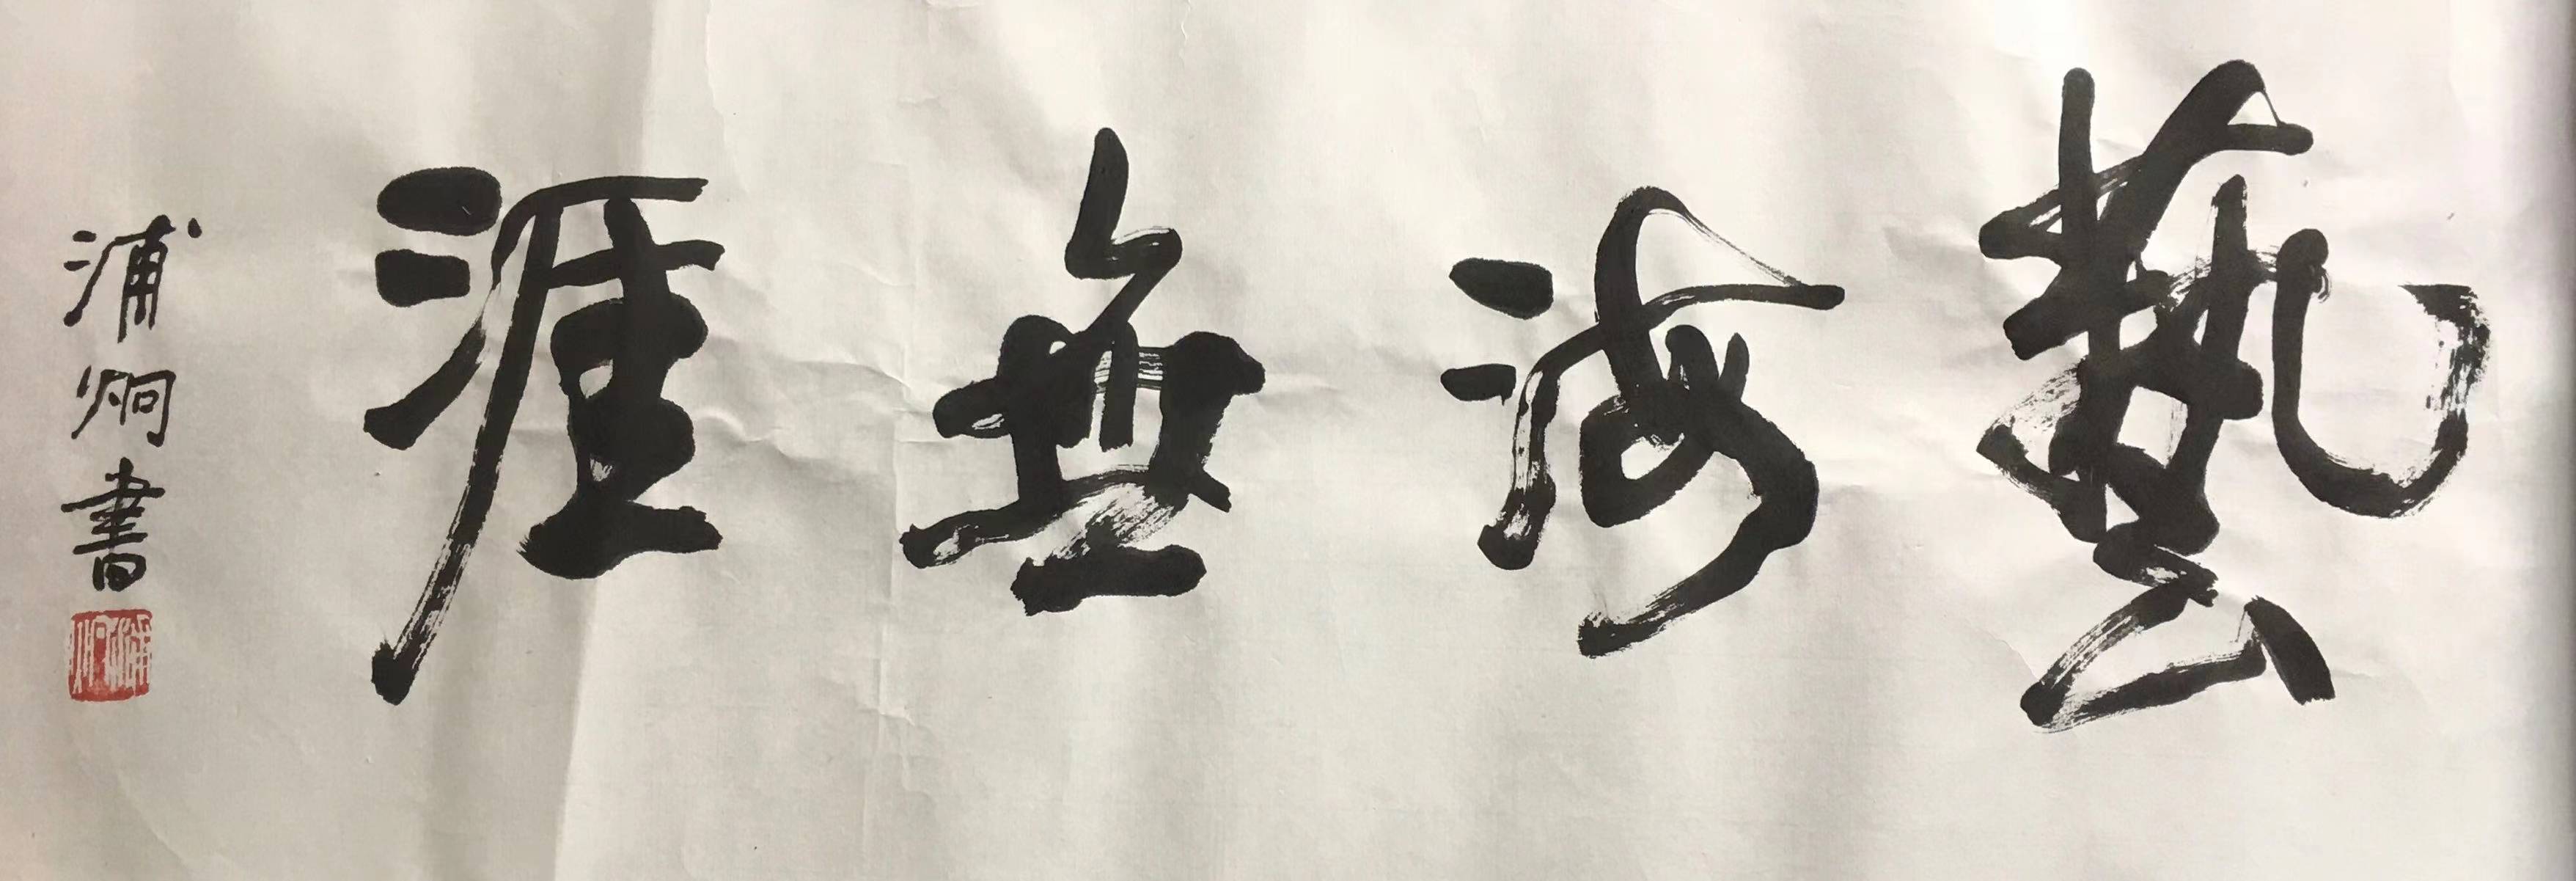 藝海無涯
浦炯書
浦炯